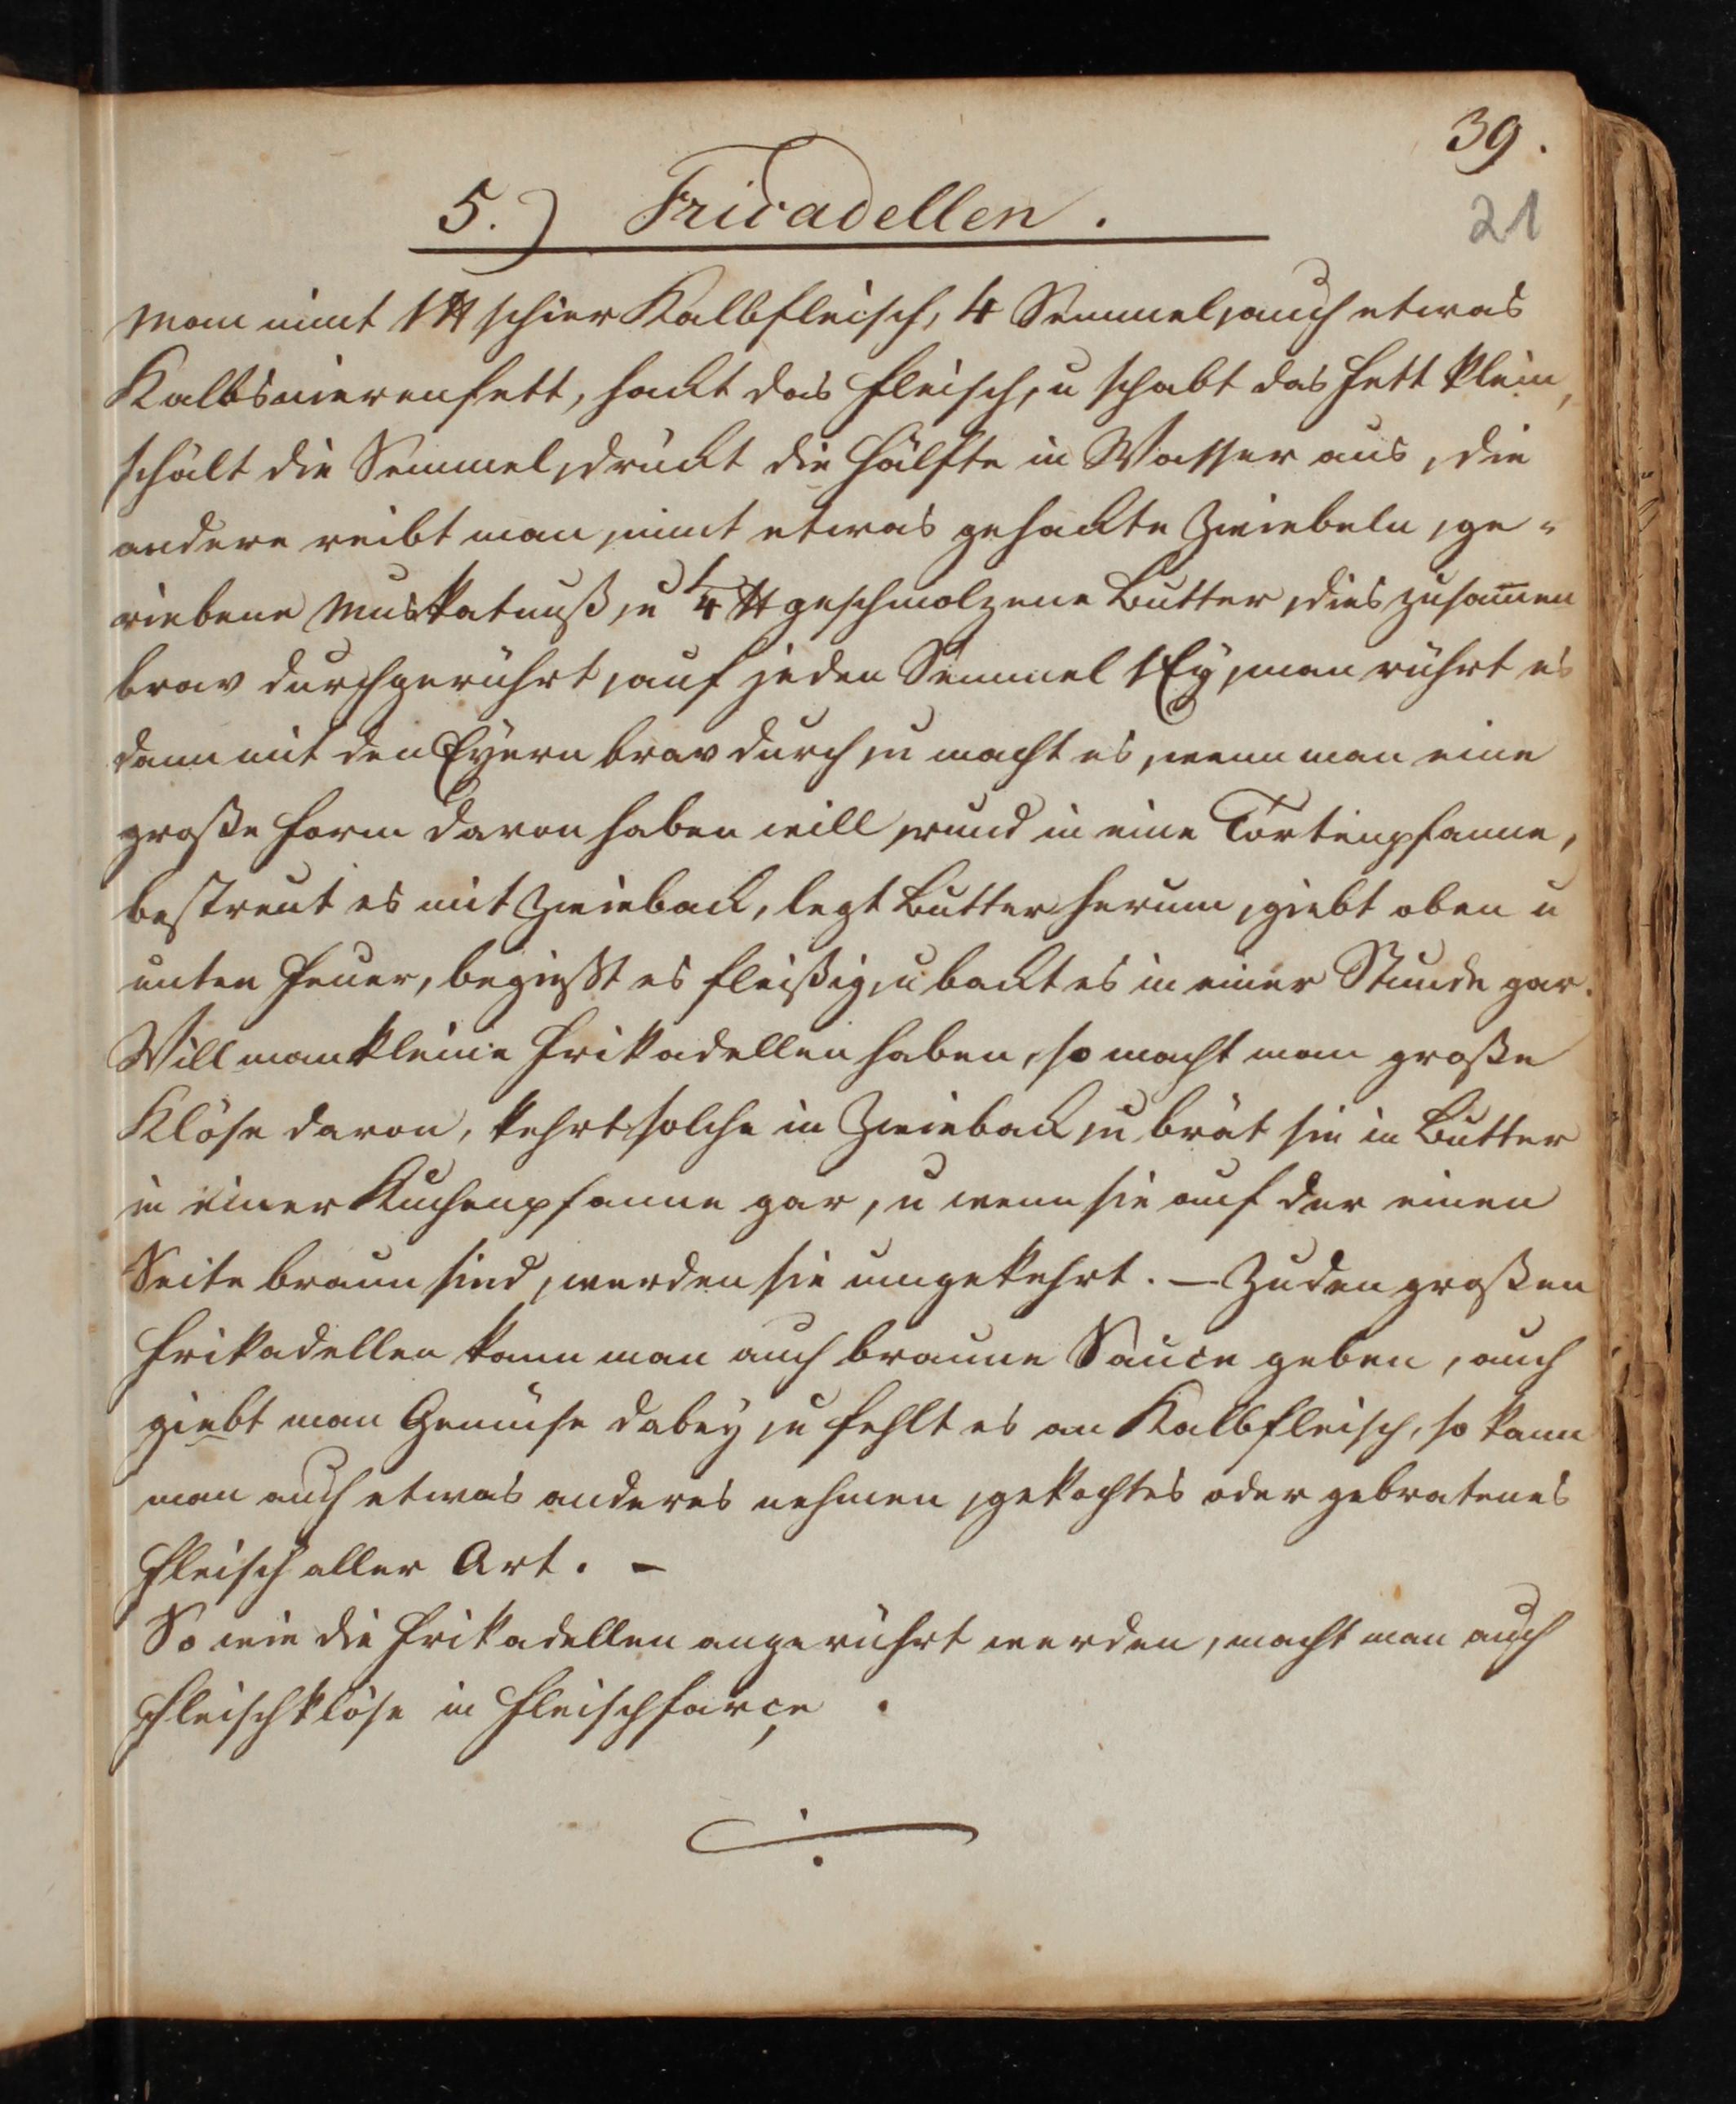 39.
21
5.) Fricadellen.
Man nimt 1 ℔ schier Kalbfleisch, 4 Semmel, auch etwas
Kalbsnierenfett, hackt das Fleisch, u schabt das Fett klein,
schält die Semmel, drückt die Hälfte in Wasser aus, die
andere reibt man, nimt etwas gehackte Zwiebeln, ge-
riebene Muskatnuß, u 1/4 ℔ geschmolzene Butter, dies zusam̅en
brav durchgerührt, auf jeden Semmel 1 Ey, man rührt es
dann mit den Eyern brav durch, u macht es, wenn man eine
große Form davon haben will, rund in eine Tortenpfanne,
bestreut es mit Zwieback, legt Butter herum, giebt oben u
unten Feuer, begießt es fleißig, u backt es in einer Stunde gar.
Will man kleine Frikadellen haben, so macht man große
Klöse davon, kehrt solche in Zwieback, u brät sie in Butter
in einer Kuchenpfanne gar, u wenn sie auf der einen
Seite braun sind, werden sie umgekehrt. — Zu den großen
Frikadellen kann man auch braune Sauce geben, auch
giebt man Gemüse dabey, u fehlt es an Kalbfleisch, so kann
man auch etwas anderes nehmen, gekochtes oder gebratenes
Fleisch aller Art. –
So wie die Frikadellen angerührt werden, macht man auch
Fleischklöse in Fleischfarçe.